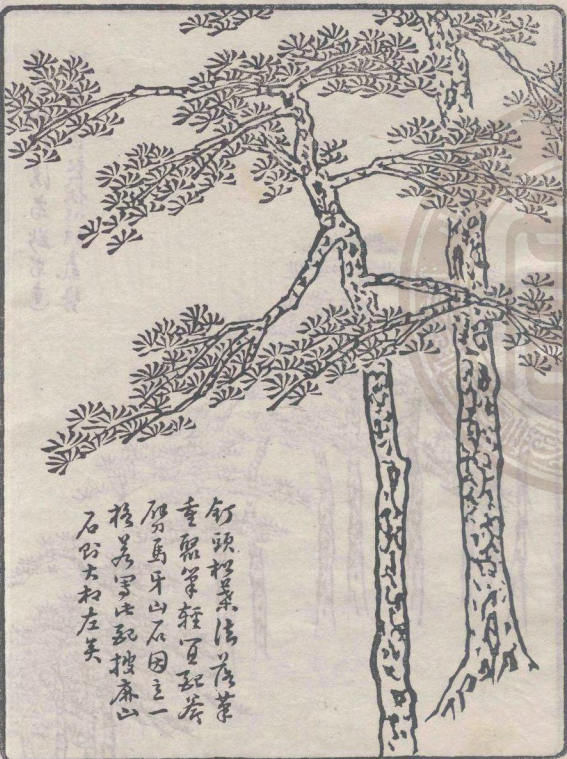 釘頭松葉法落筆
重聚筆輕宜配斧
劈馬牙山石因立一
格若寫此配披麻山
石則大相左矣